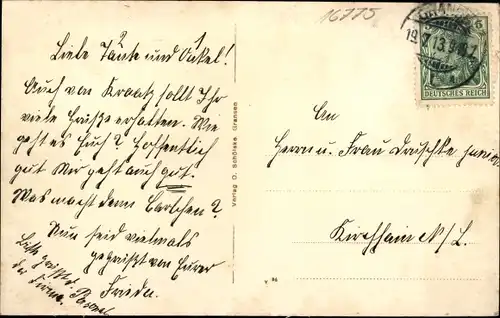 16775
Liebe Tante und Onkel!
2 1
Auch von Kraatz sollt Ihr
viele Grüße erhalten. Wie
geht es Euch? Hoffentlich
gut. Mir geht auch gut.
Was macht denn Carlchen?
Nun seid vielmals
gegrüßt von Eurer
Frieda.
Verlag O. Schülske, Gransee
GRANSEE
19.7.13.
5
DEUTSCHES REICH
An
Herrn u. Frau Druschke junior
Kirchhain N/L.